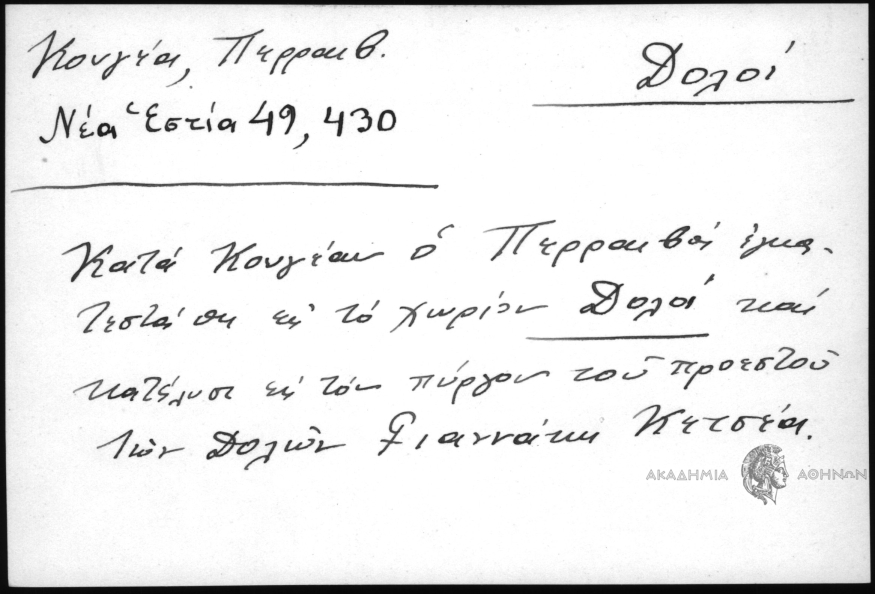 Κουγέα, Περραιβ.
Δολοί
Νέα Ἑστία 49, 430
Κατά Κουγέαν ὁ Περραιβός ἐγκα-
τεστάθη εἰς τό χωρίον Δολοί καί
κατέλυσε εἰς τόν πύργον τοῦ προεστοῦ
τῶν Δολῶν Γιαννάκη Κετσέα.
ΑΚΑΔΗΜΙΑ ΑΘΗΝΩΝ